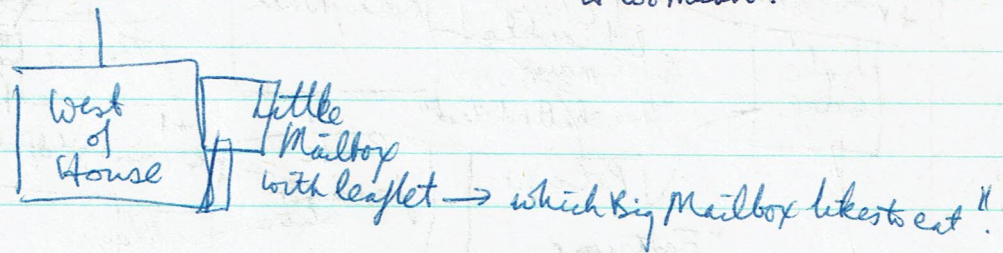 West
of
House
Little
Mailbox
with leaflet → which Big Mailbox likes to eat".